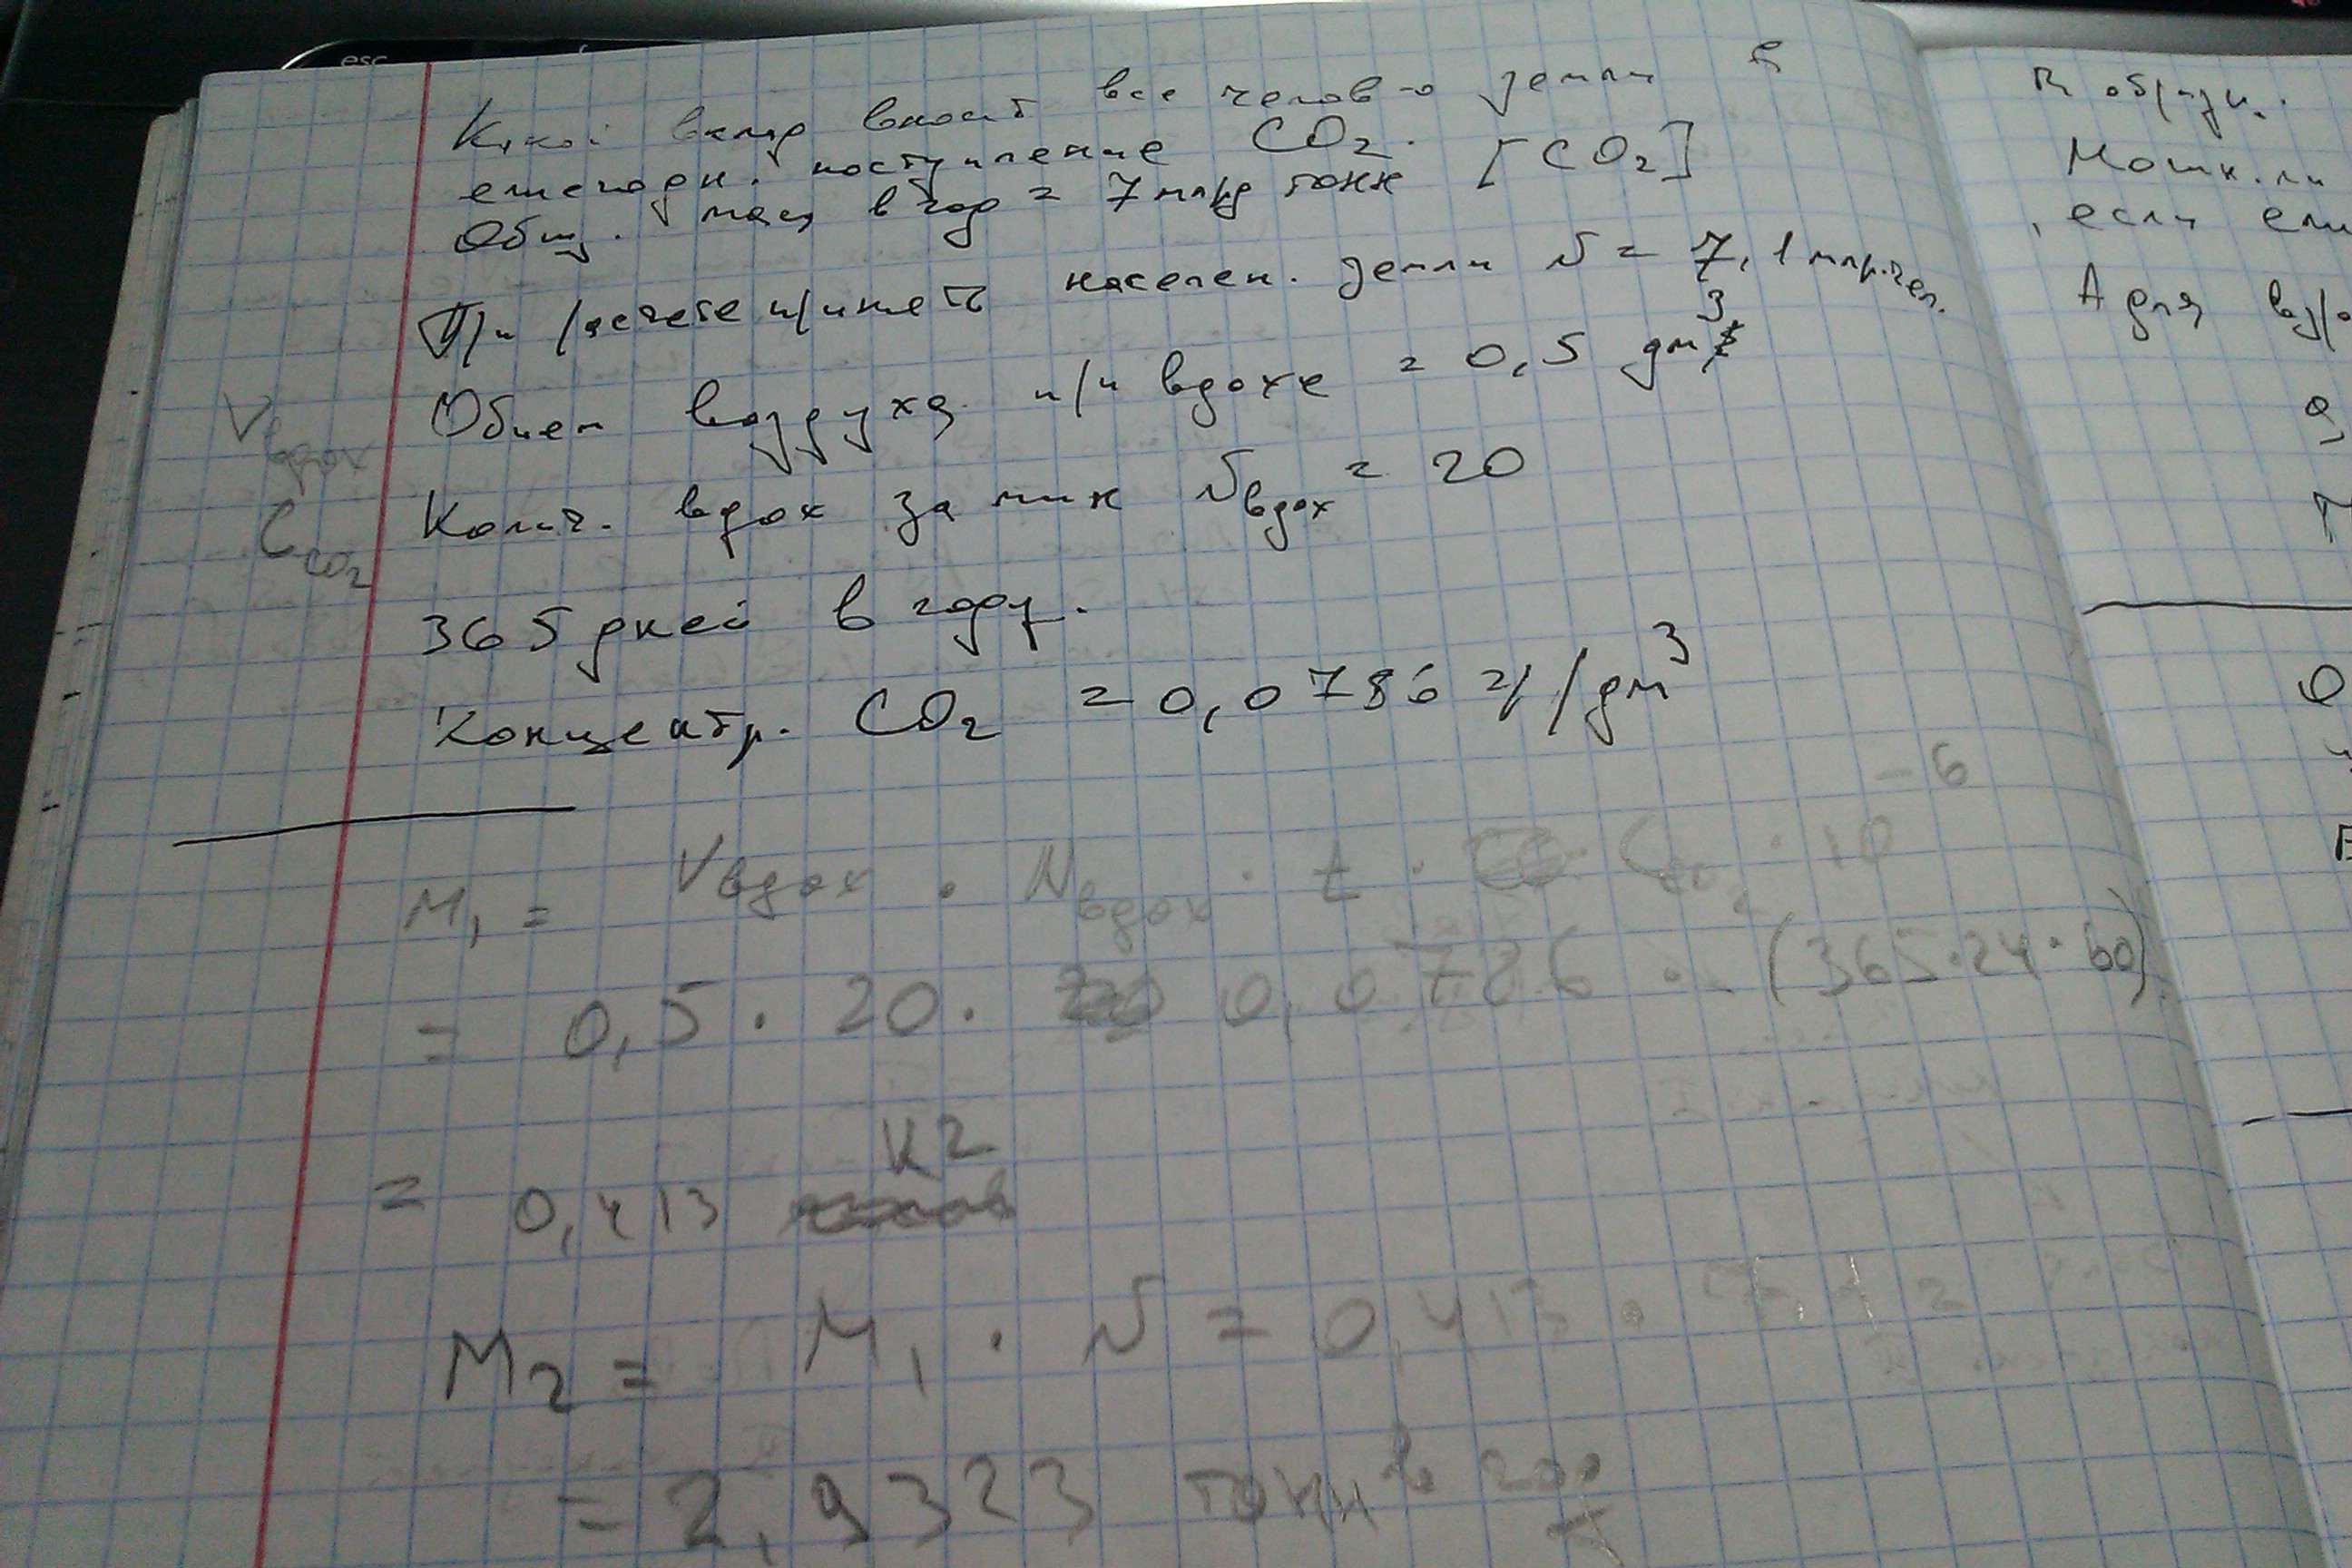 esc
Какой вклад вносит все челов-о земли в
ежегодн. поступление CO2.
Общ. масс в год = 7 млрд тонн [CO2]
При расчете принять населен. земли N = 7,1 млр. чел.
Объем воздуха при вдохе = 0,5 дм3
Vвдох
Колич. вдох за мин Nвдох = 20
CCO2
365 дней в году.
Концентр. CO2 = 0,0786 гр/дм3
M1 = Vвдох · Nвдох · t · CCO2 · 10-6
= 0,5 · 20 · 0,0786 · (365·24·60)
= 0,413 кг
M2 = M1 · N = 0,413 · 7,1 =
= 2,9323 тонн в год
в
Мож. ли
, если
А для